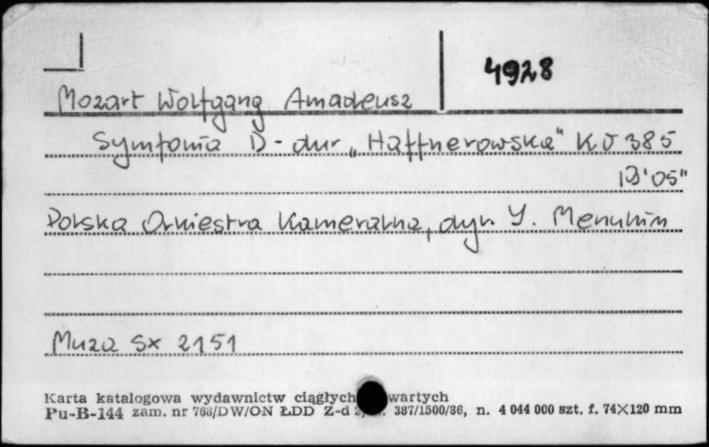 4928
Mozart Wolfgang Amadeusz
Symfonia D-dur „Haffnerowska" KV 385
Polska Orkiestra Kameralna, dyr. Y. Menuhin
Muza Sx 2151
Karta katalogowa wydawnictw ciągłych
Pu-B-144 zam. nr 766/DW/ON ŁDD Z-d 387/1500/86, n. 4 044 000 szt. f. 74×120 mm